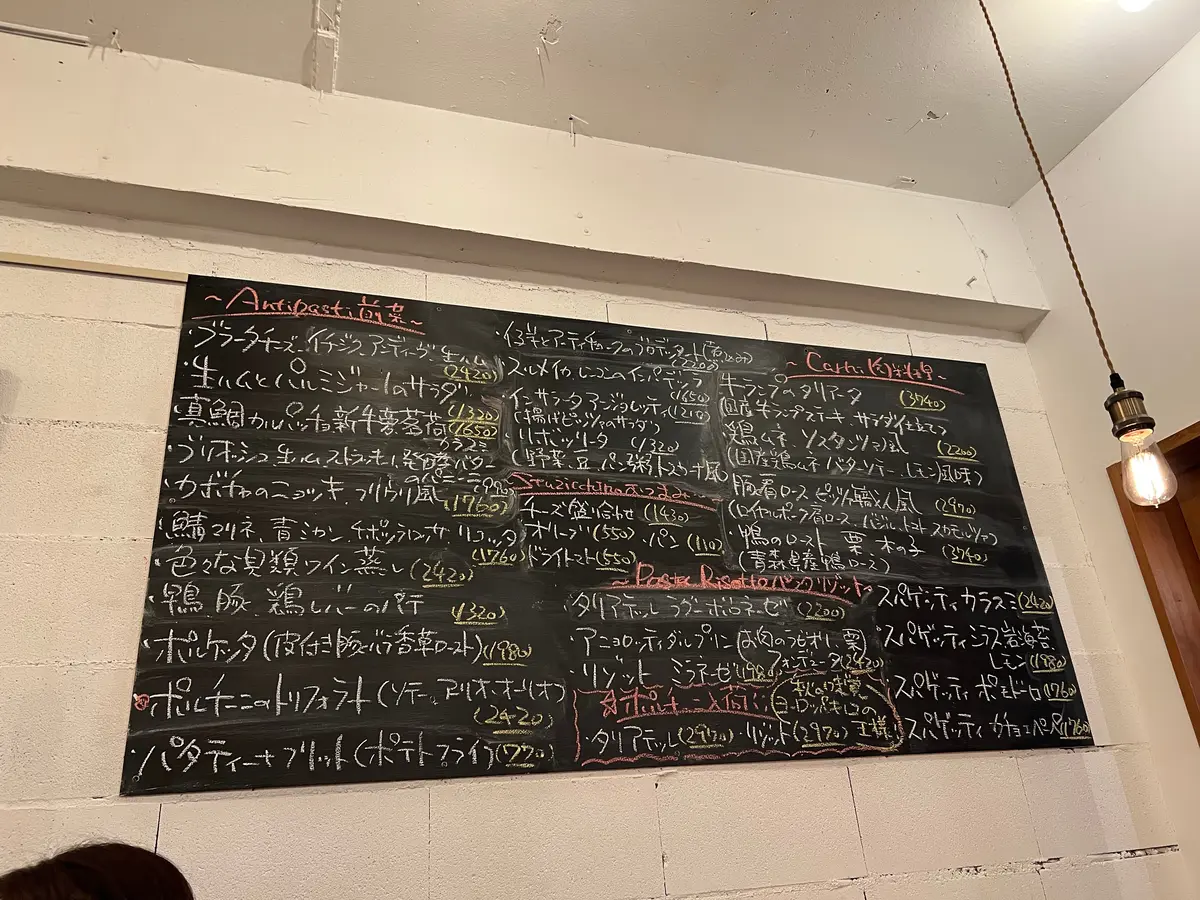 ~Antipasti 前菜~
・ブラータチーズ、イチジク、アンディーヴ、生ハム
(2420)
・生ハムとパルミジャーノのサラダ
(1320)
真鯛カルパッチョ 新牛蒡 茗荷
カラスミ
(1650)
・ブリオッシュ、生ハム、ストラッキーノ、発酵バター
のパニーニ
・カボチャのニョッキ フリウリ風
(1760)
・鯖マリネ、青ミカン、チポッラロッサ、リコッタ
(1760)
・色々な貝類ワイン蒸し(2420)
・鴨、豚、鶏レバーのパテ
(1320)
・ポルケッタ(皮付き豚バラ香草ロースト)(1980)
・ポルチーニのトリフォラート(ソテー、アーリオ・オーリオ)
(2420)
・パタティーナフリット(ポテトフライ)(770)
・イイダコとアーティチョークのブロデッタート(煮込み)
(2200)
・スルメイカ レンコンのインパデッラ
(1650)
・インサラータ アンジョレッティ(1210)
(揚げピッツァのサラダ)
・リボッリータ (1320)
(野菜、豆、パン粥 トスカーナ風)
Stuzicchino おつまみ
・チーズ盛り合わせ (1430)
・オリーブ(550) ・パン (110)
・ドライトマト(550)
~Carne 肉料理~
・牛ランプのタリアータ (3740)
(国産牛ランプステーキ サラダ仕立て)
・鶏ムネ、ソスタンツァ風 (2200)
(国産鶏ムネ バターソテー レモン風味)
・豚肩ロース ピッツァ職人風 (2970)
(ロイヤルポーク肩ロース、バジル、トマト、スカモルツァ)
・鴨のロースト 栗 木の子 (3740)
(青森県産鴨ロース)
~Pasta Risotto パスタ リゾット~
・タリアテッレ ラグーボロネーゼ (2200)
・アニョロッティ ダル プリン(お肉のラビオリ 栗)
フォンデュータ(2420)
・リゾット ミラネーゼ(1980)
☆ポルチーニ入荷!!
秋の味覚
ヨーロッパキノコの
王様!
・タリアテッレ(2970)・リゾット(2970)
・スパゲッティ カラスミ(2420)
・スパゲッティ シラス 岩海苔
レモン(1980)
・スパゲッティ ポモドーロ(1760)
・スパゲッティ カチョエペペ(1760)